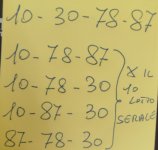 10-30-78-87
10-78-87
10-78-30
10-87-30
87-78-30
X IL
10
LOTTO
SERALE